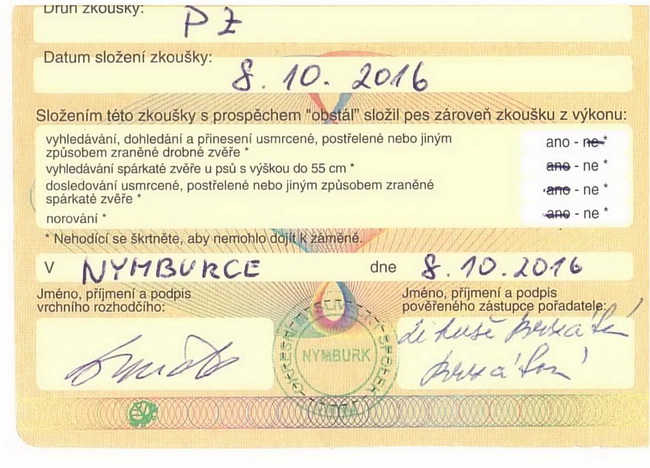 Druh zkoušky:
PZ
Datum složení zkoušky:
8. 10. 2016
Složením této zkoušky s prospěchem "obstál" složil pes zároveň zkoušku z výkonu:
vyhledávání, dohledání a přinesení usmrcené, postřelené nebo jiným
způsobem zraněné drobné zvěře *
ano - ne *
vyhledávání spárkaté zvěře u psů s výškou do 55 cm *
ano - ne *
dosledování usmrcené, postřelené nebo jiným způsobem zraněné
spárkaté zvěře *
ano - ne *
norování *
ano - ne *
* Nehodící se škrtněte, aby nemohlo dojít k záměně.
V NYMBURCE dne 8.10.2016
Jméno, příjmení a podpis
vrchního rozhodčího:
Jméno, příjmení a podpis
pověřeného zástupce pořadatele:
OKRESNÍ MYSLIVECKÝ SPOLEK
NYMBURK